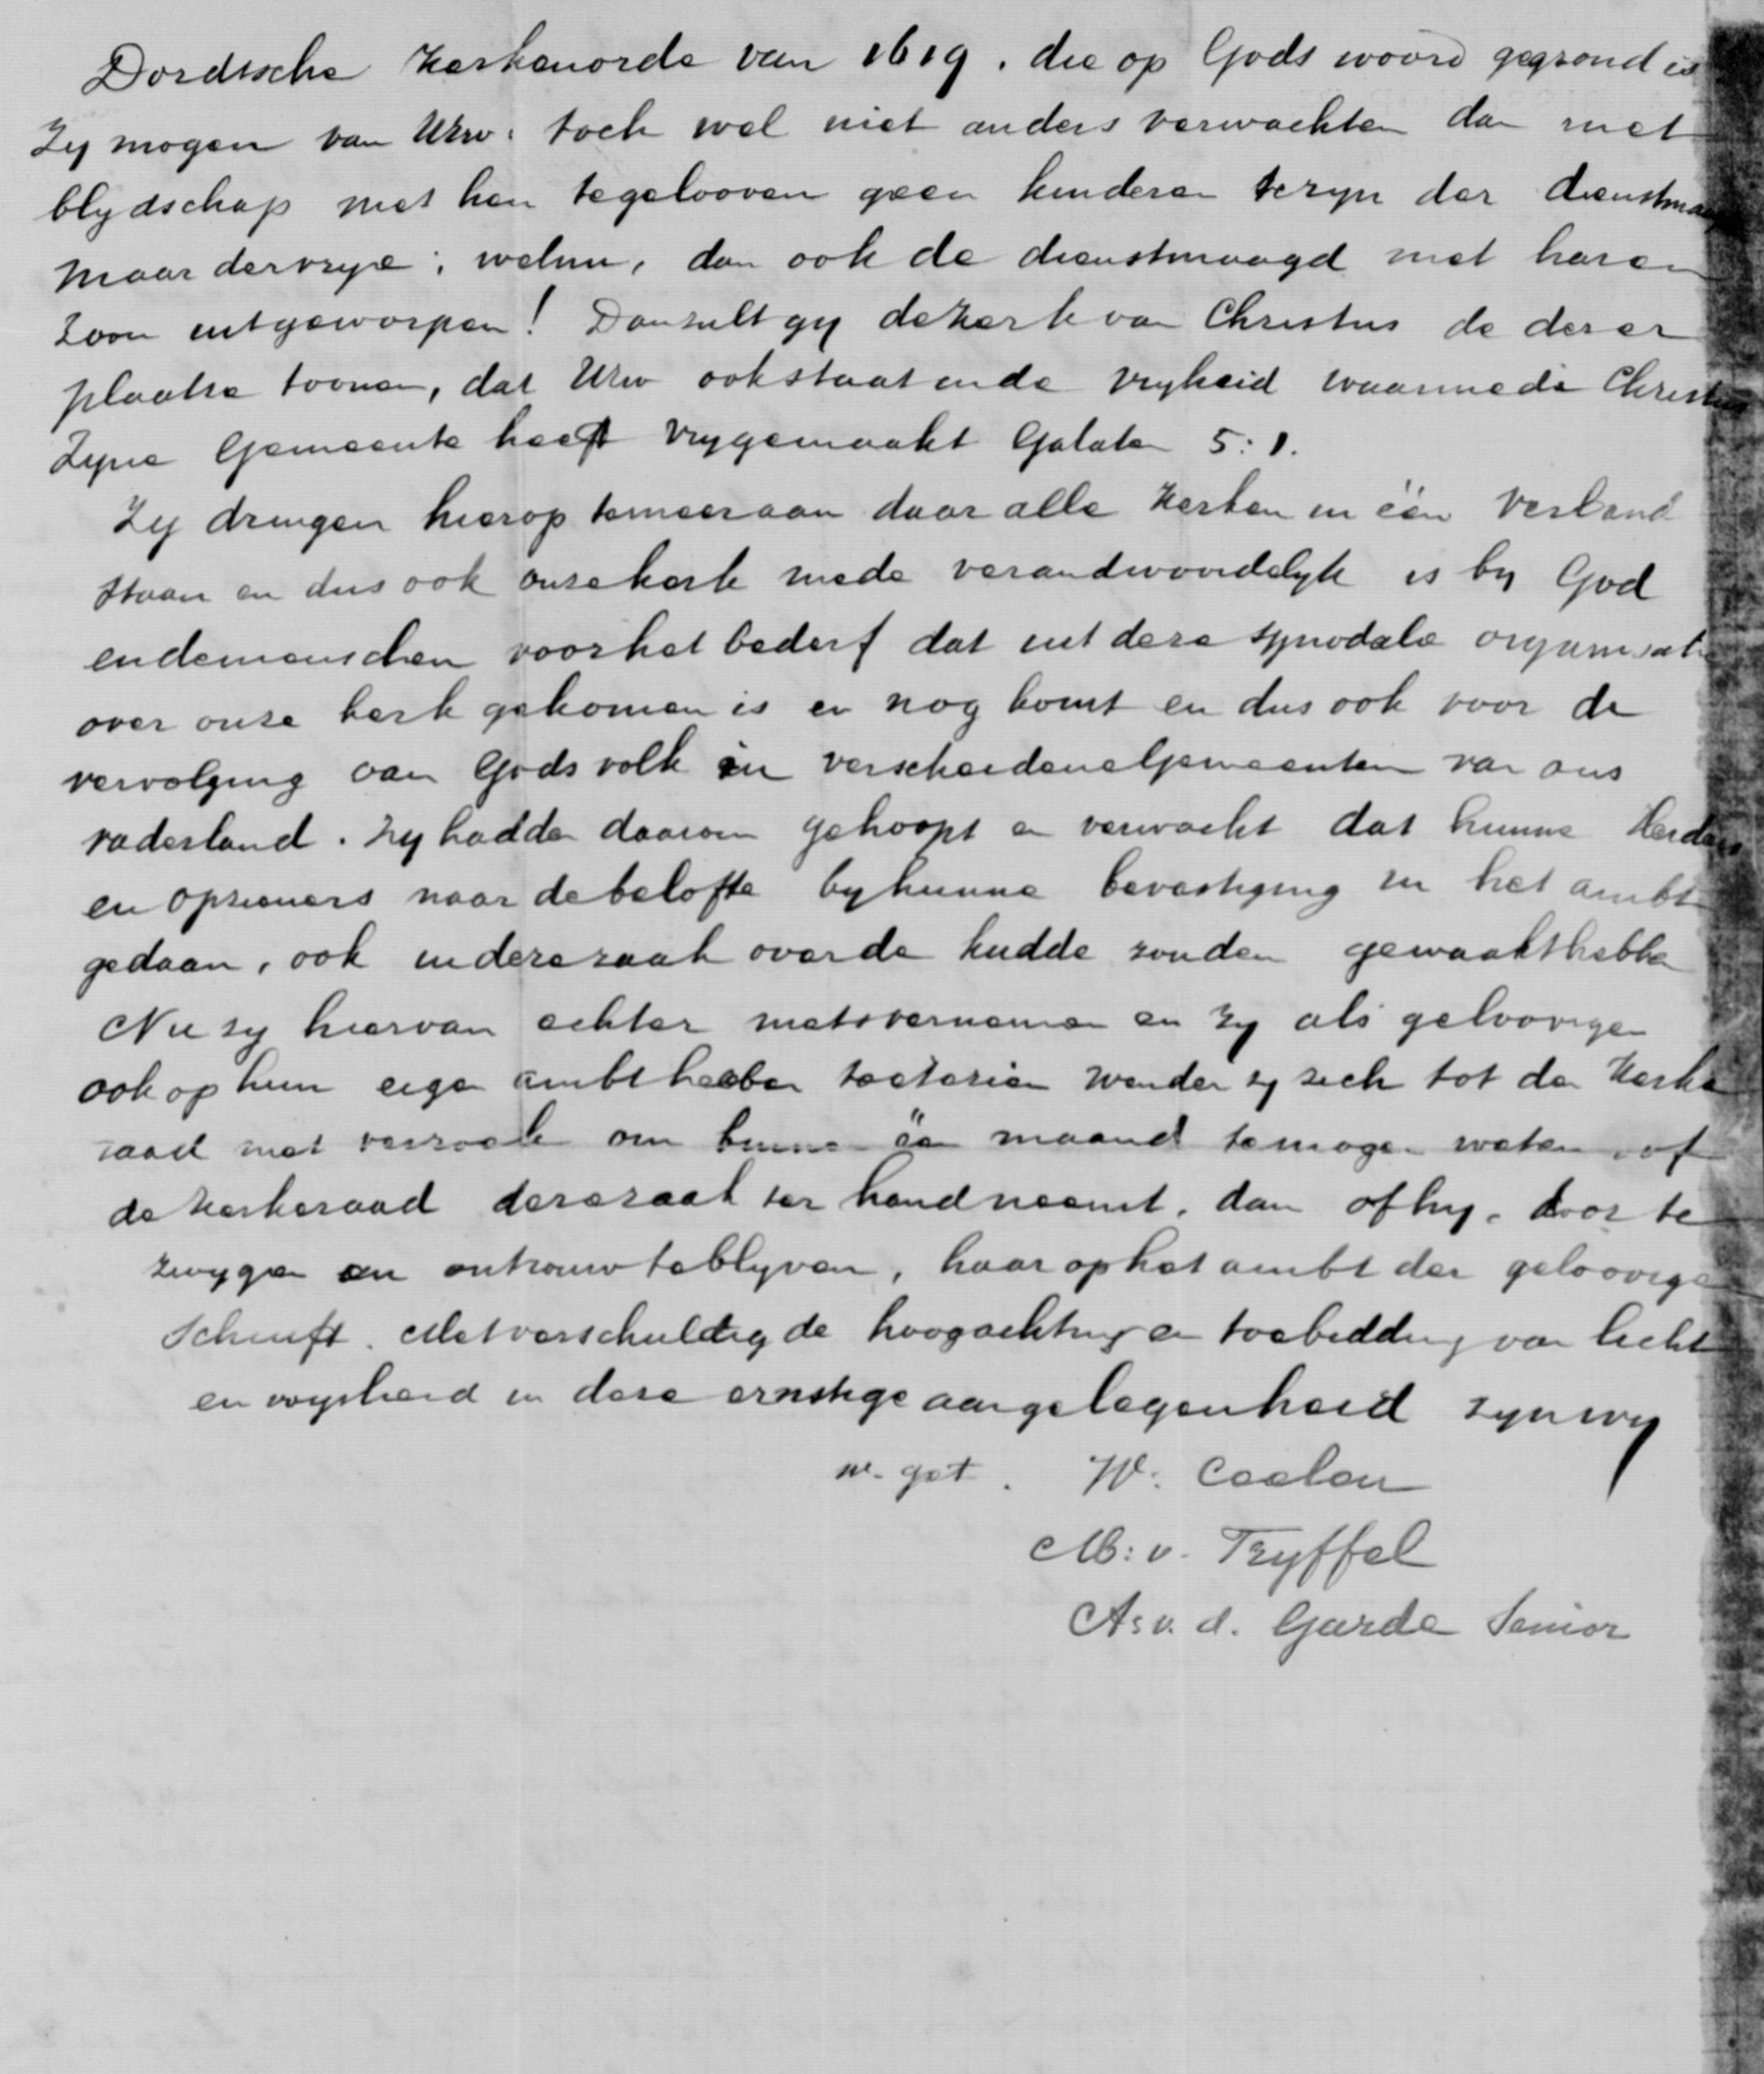 Dordtsche Kerkenorde van 1619. die op Gods woord gegrond is
Zy mogen van UEw. toch wel niet anders verwachten dan met
blydschap met hen te gelooven geen kinderen te zyn der dienstmaagd
maar der vrye; welnu, dan ook de dienstmaagd met haren
zoon uitgeworpen! Dan zult gy de kerk van Christus te dezer
plaatse toonen, dat UEw ook staat in de vryheid waarmede Christus
Zyne Gemeente heeft vrygemaakt Galaten 5:1.
Zy dringen hierop te meer aan daar alle Kerken in één verband
staan en dus ook onze kerk mede verandwoordelyk is by God
en de menschen voor het bederf dat uit deze synodale organisatie
over onze kerk gekomen is en nog komt en dus ook voor de
vervolging van Gods volk in verscheidene Gemeenten van ons
vaderland. Zy hadden daarom gehoopt en verwacht dat hunne Herders
en opzieners naar de belofte by hunne bevestiging in het ambt
gedaan, ook in deze zaak over de kudde zouden gewaakt hebben
Nu zy hiervan echter niets vernemen en zy als geloovigen
ook op hun eigen ambt hebben toe te zien wenden zy zich tot den Kerke
raad met verzoek om binnen één maand te mogen weten, of
de kerkeraad deze zaak ter hand neemt, dan of hy, door te
zwygen en ontrouw te blyven, haar op het ambt der geloovigen
Schuift. Met verschuldigde hoogachting en toebidding van licht
en wysheid in deze ernstige aangelegenheid zyn wy
w. get. W. Ceelen
M. v. Tryffel
A. v. d. Garde Senior